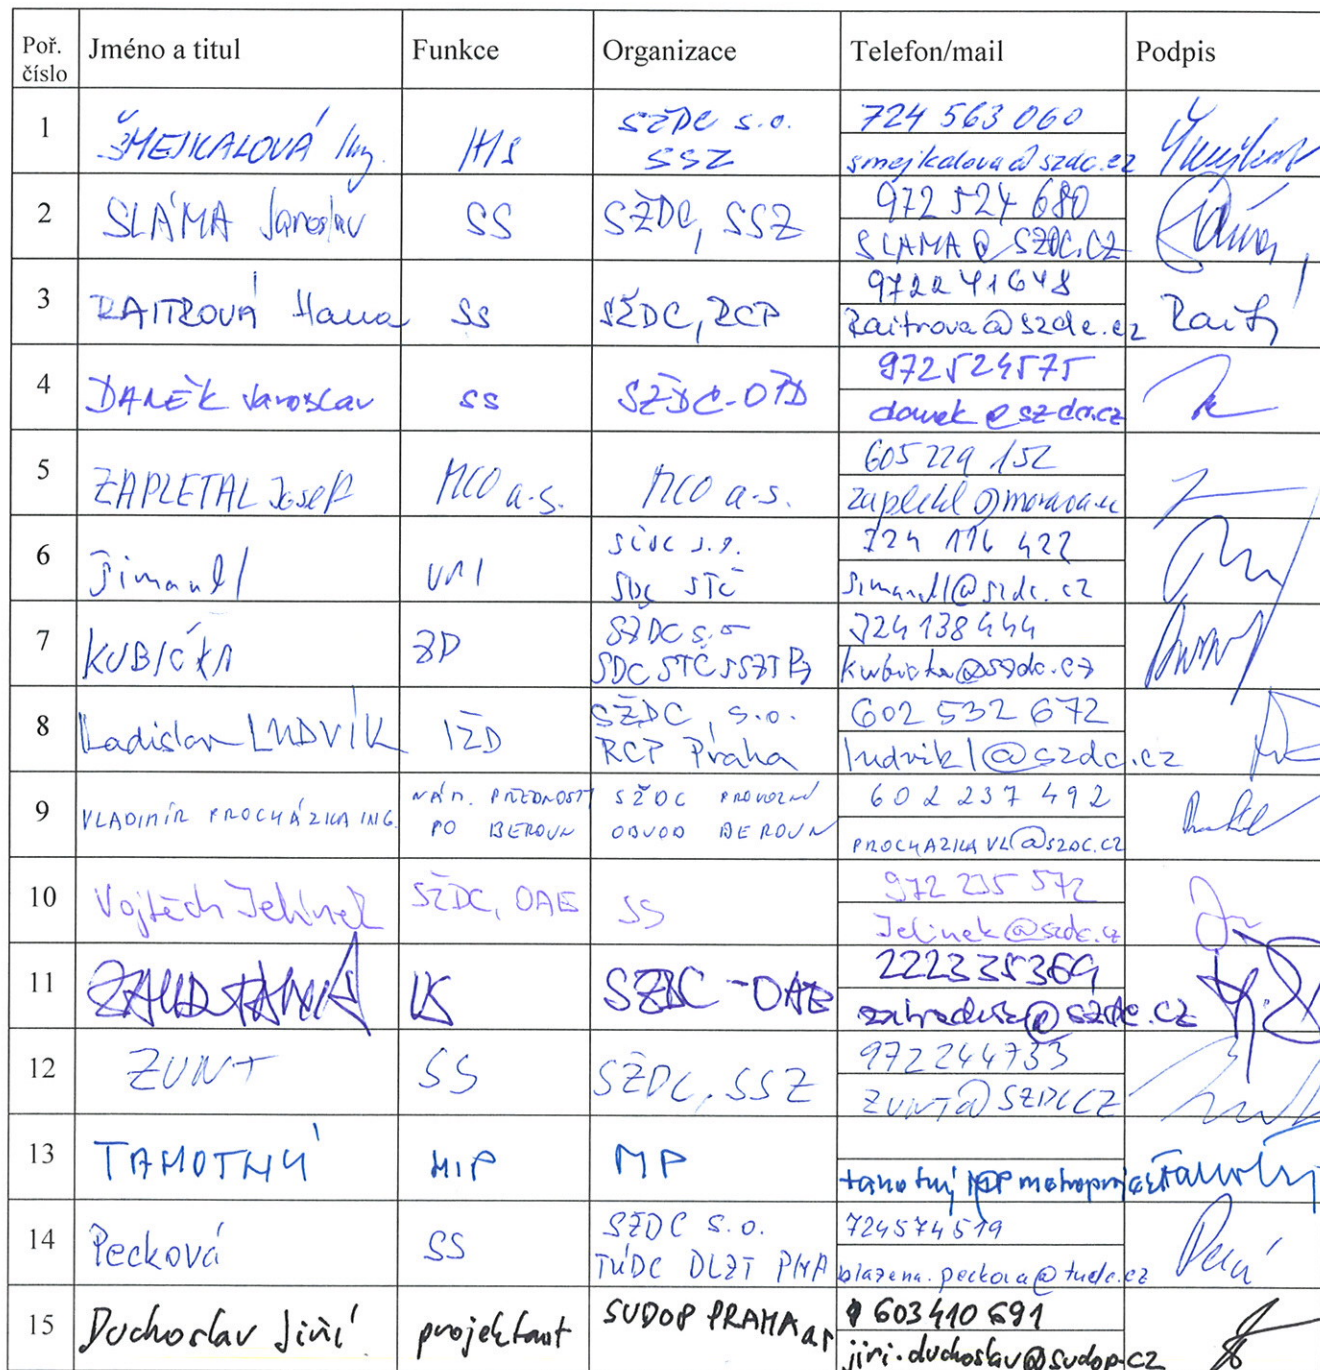 Poř. číslo Jméno a titul Funkce Organizace Telefon/mail Podpis
1 ŠMEJKALOVÁ Ing. HIS SŽDC s.o. SSZ 724 563 060 smejkalova@szdc.cz
2 SLÁMA Jaroslav SS SŽDC, SSZ 972 524 680 SLAMA@SZDC.CZ
3 RAITROVÁ Hana SS SŽDC, RCP 972241648 Raitrova@szdc.cz
4 DANĚK Jaroslav SS SŽDC-OPD 972524575 danek@szdc.cz
5 ZAPLETAL Josef MCO a.s. MCO a.s. 605 229 152
6 Šimandl SŽDC s.o. SDC STČ 724 116 422 simandl@szdc.cz
7 KUBIČKA ŽD SŽDC s.o SDC STČ SSZT 724 138 444 kubicka@szdc.cz
8 Ladislav LUDVÍK IŽD SŽDC, s.o. RCP Praha 602 532 672 ludvikl@szdc.cz
9 VLADIMÍR PROCHÁZKA ING. NÁM. PŘEDNOSTY PO BEROUN SŽDC PROVOZNÍ OBVOD BEROUN 602 237 492 PROCHAZKAVL@SZDC.CZ
10 Vojtěch Jelínek SŽDC, OAE SS 972 235 572 Jelinek@szdc.cz
11 SŽDC-OAE 222335369 @szdc.cz
12 ZUNT SS SŽDC, SSZ 972244733 ZUNT@SZDC.CZ
13 TAMOTNÝ HIP MP
14 Pecková SS SŽDC s.o. TÚDC DLZT PHA 724574519 blazena.peckova@tudc.cz
15 Duchoslav Jiří projektant SUDOP PRAHA as 603410691 jiri.duchoslav@sudop.cz